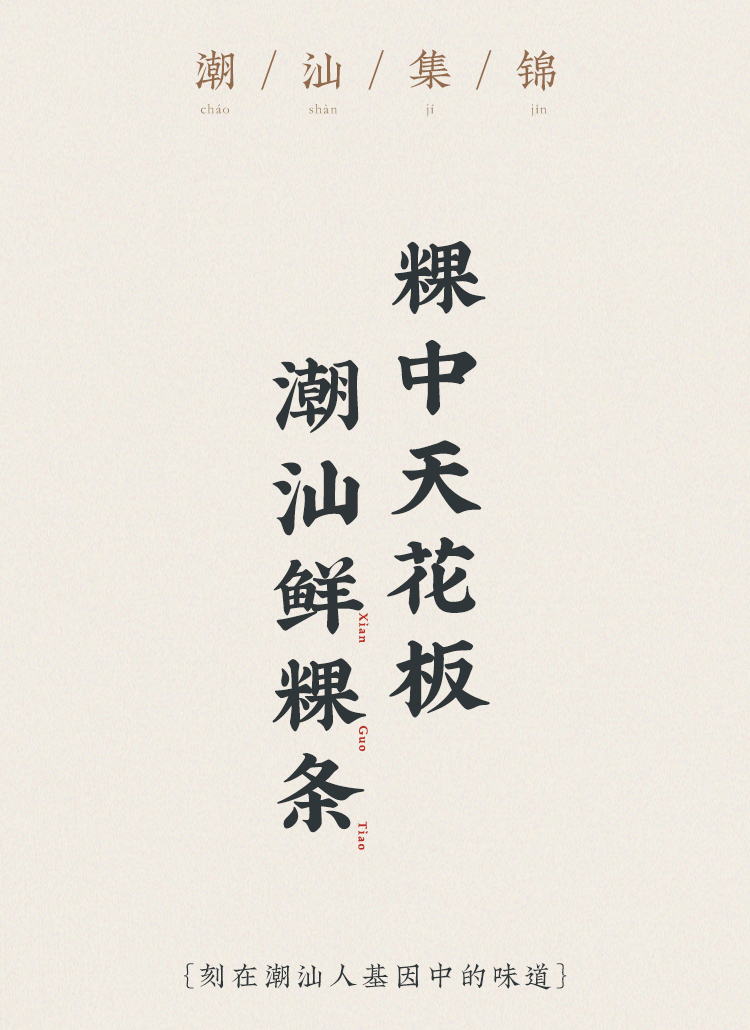 潮/汕/集/锦
cháo shàn jí jǐn
粿中天花板
潮汕鲜粿条
Xian Guo Tiao
{刻在潮汕人基因中的味道}